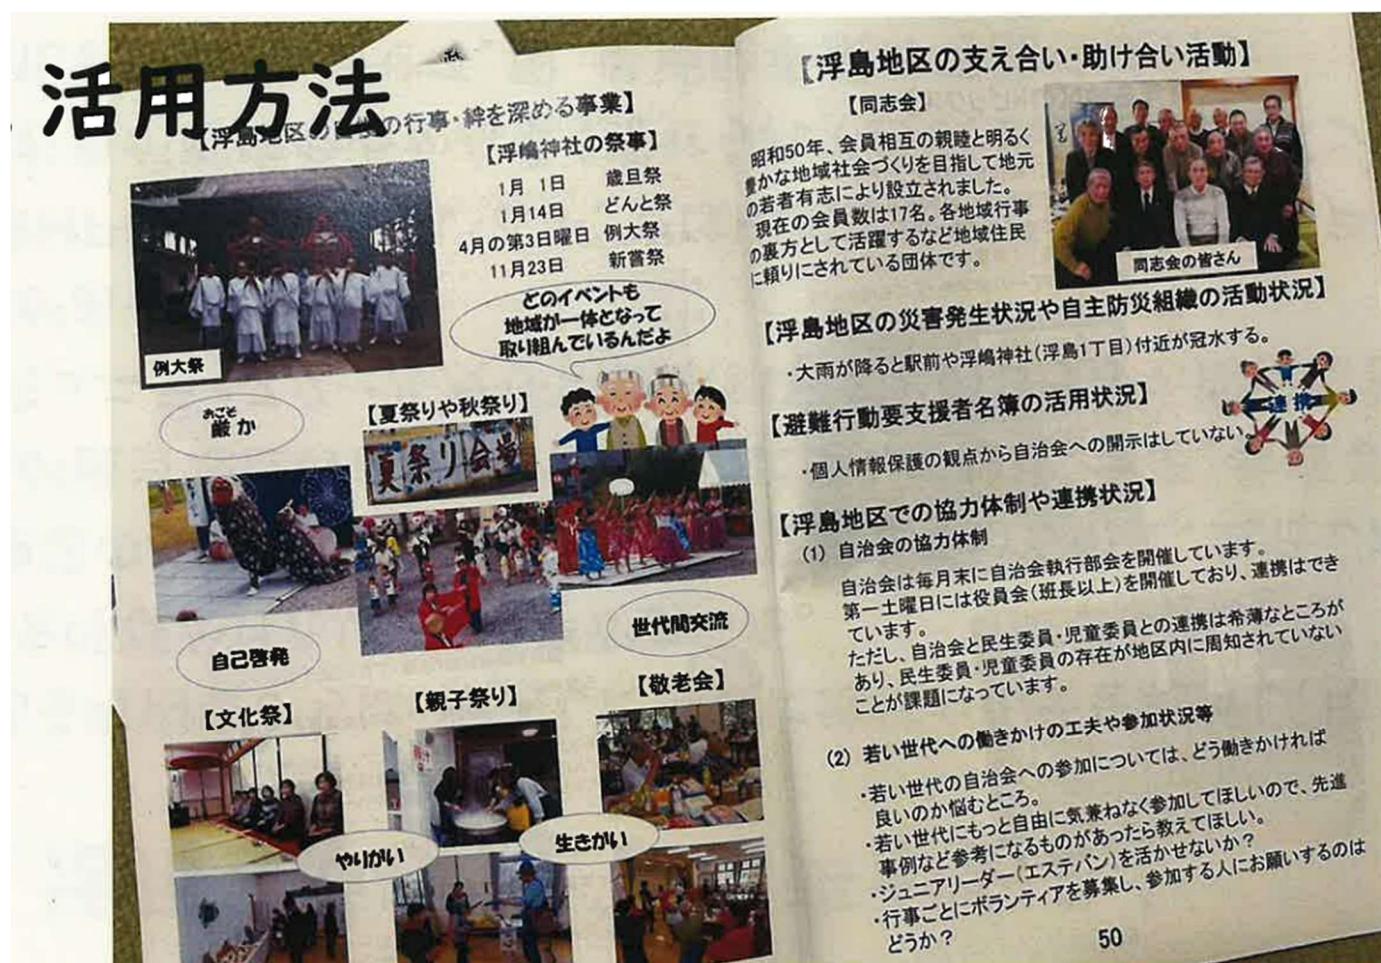 活用方法
【浮島地区の の行事・絆を深める事業】
【浮嶋神社の祭事】
1月 1日 歳旦祭
1月14日 どんと祭
4月の第3日曜日 例大祭
11月23日 新嘗祭
どのイベントも
地域が一体となって
取り組んでいるんだよ
例大祭
おごそ
厳か
【夏祭りや秋祭り】
夏祭り会場
自己啓発
世代間交流
【文化祭】
【親子祭り】
【敬老会】
やりがい
生きがい
【浮島地区の支え合い・助け合い活動】
【同志会】
昭和50年、会員相互の親睦と明るく
豊かな地域社会づくりを目指して地元
の若者有志により設立されました。
現在の会員数は17名。各地域行事
の裏方として活躍するなど地域住民
に頼りにされている団体です。
同志会の皆さん
【浮島地区の災害発生状況や自主防災組織の活動状況】
・大雨が降ると駅前や浮嶋神社(浮島1丁目)付近が冠水する。
【避難行動要支援者名簿の活用状況】
・個人情報保護の観点から自治会への開示はしていない。
連携
【浮島地区での協力体制や連携状況】
(1) 自治会の協力体制
自治会は毎月末に自治会執行部会を開催しています。
第一土曜日には役員会(班長以上)を開催しており、連携はでき
ています。
ただし、自治会と民生委員・児童委員との連携は希薄なところが
あり、民生委員・児童委員の存在が地区内に周知されていない
ことが課題になっています。
(2) 若い世代への働きかけの工夫や参加状況等
・若い世代の自治会への参加については、どう働きかければ
良いのか悩むところ。
・若い世代にもっと自由に気兼ねなく参加してほしいので、先進
事例など参考になるものがあったら教えてほしい。
・ジュニアリーダー(エステバン)を活かせないか?
・行事ごとにボランティアを募集し、参加する人にお願いするのは
どうか?
50